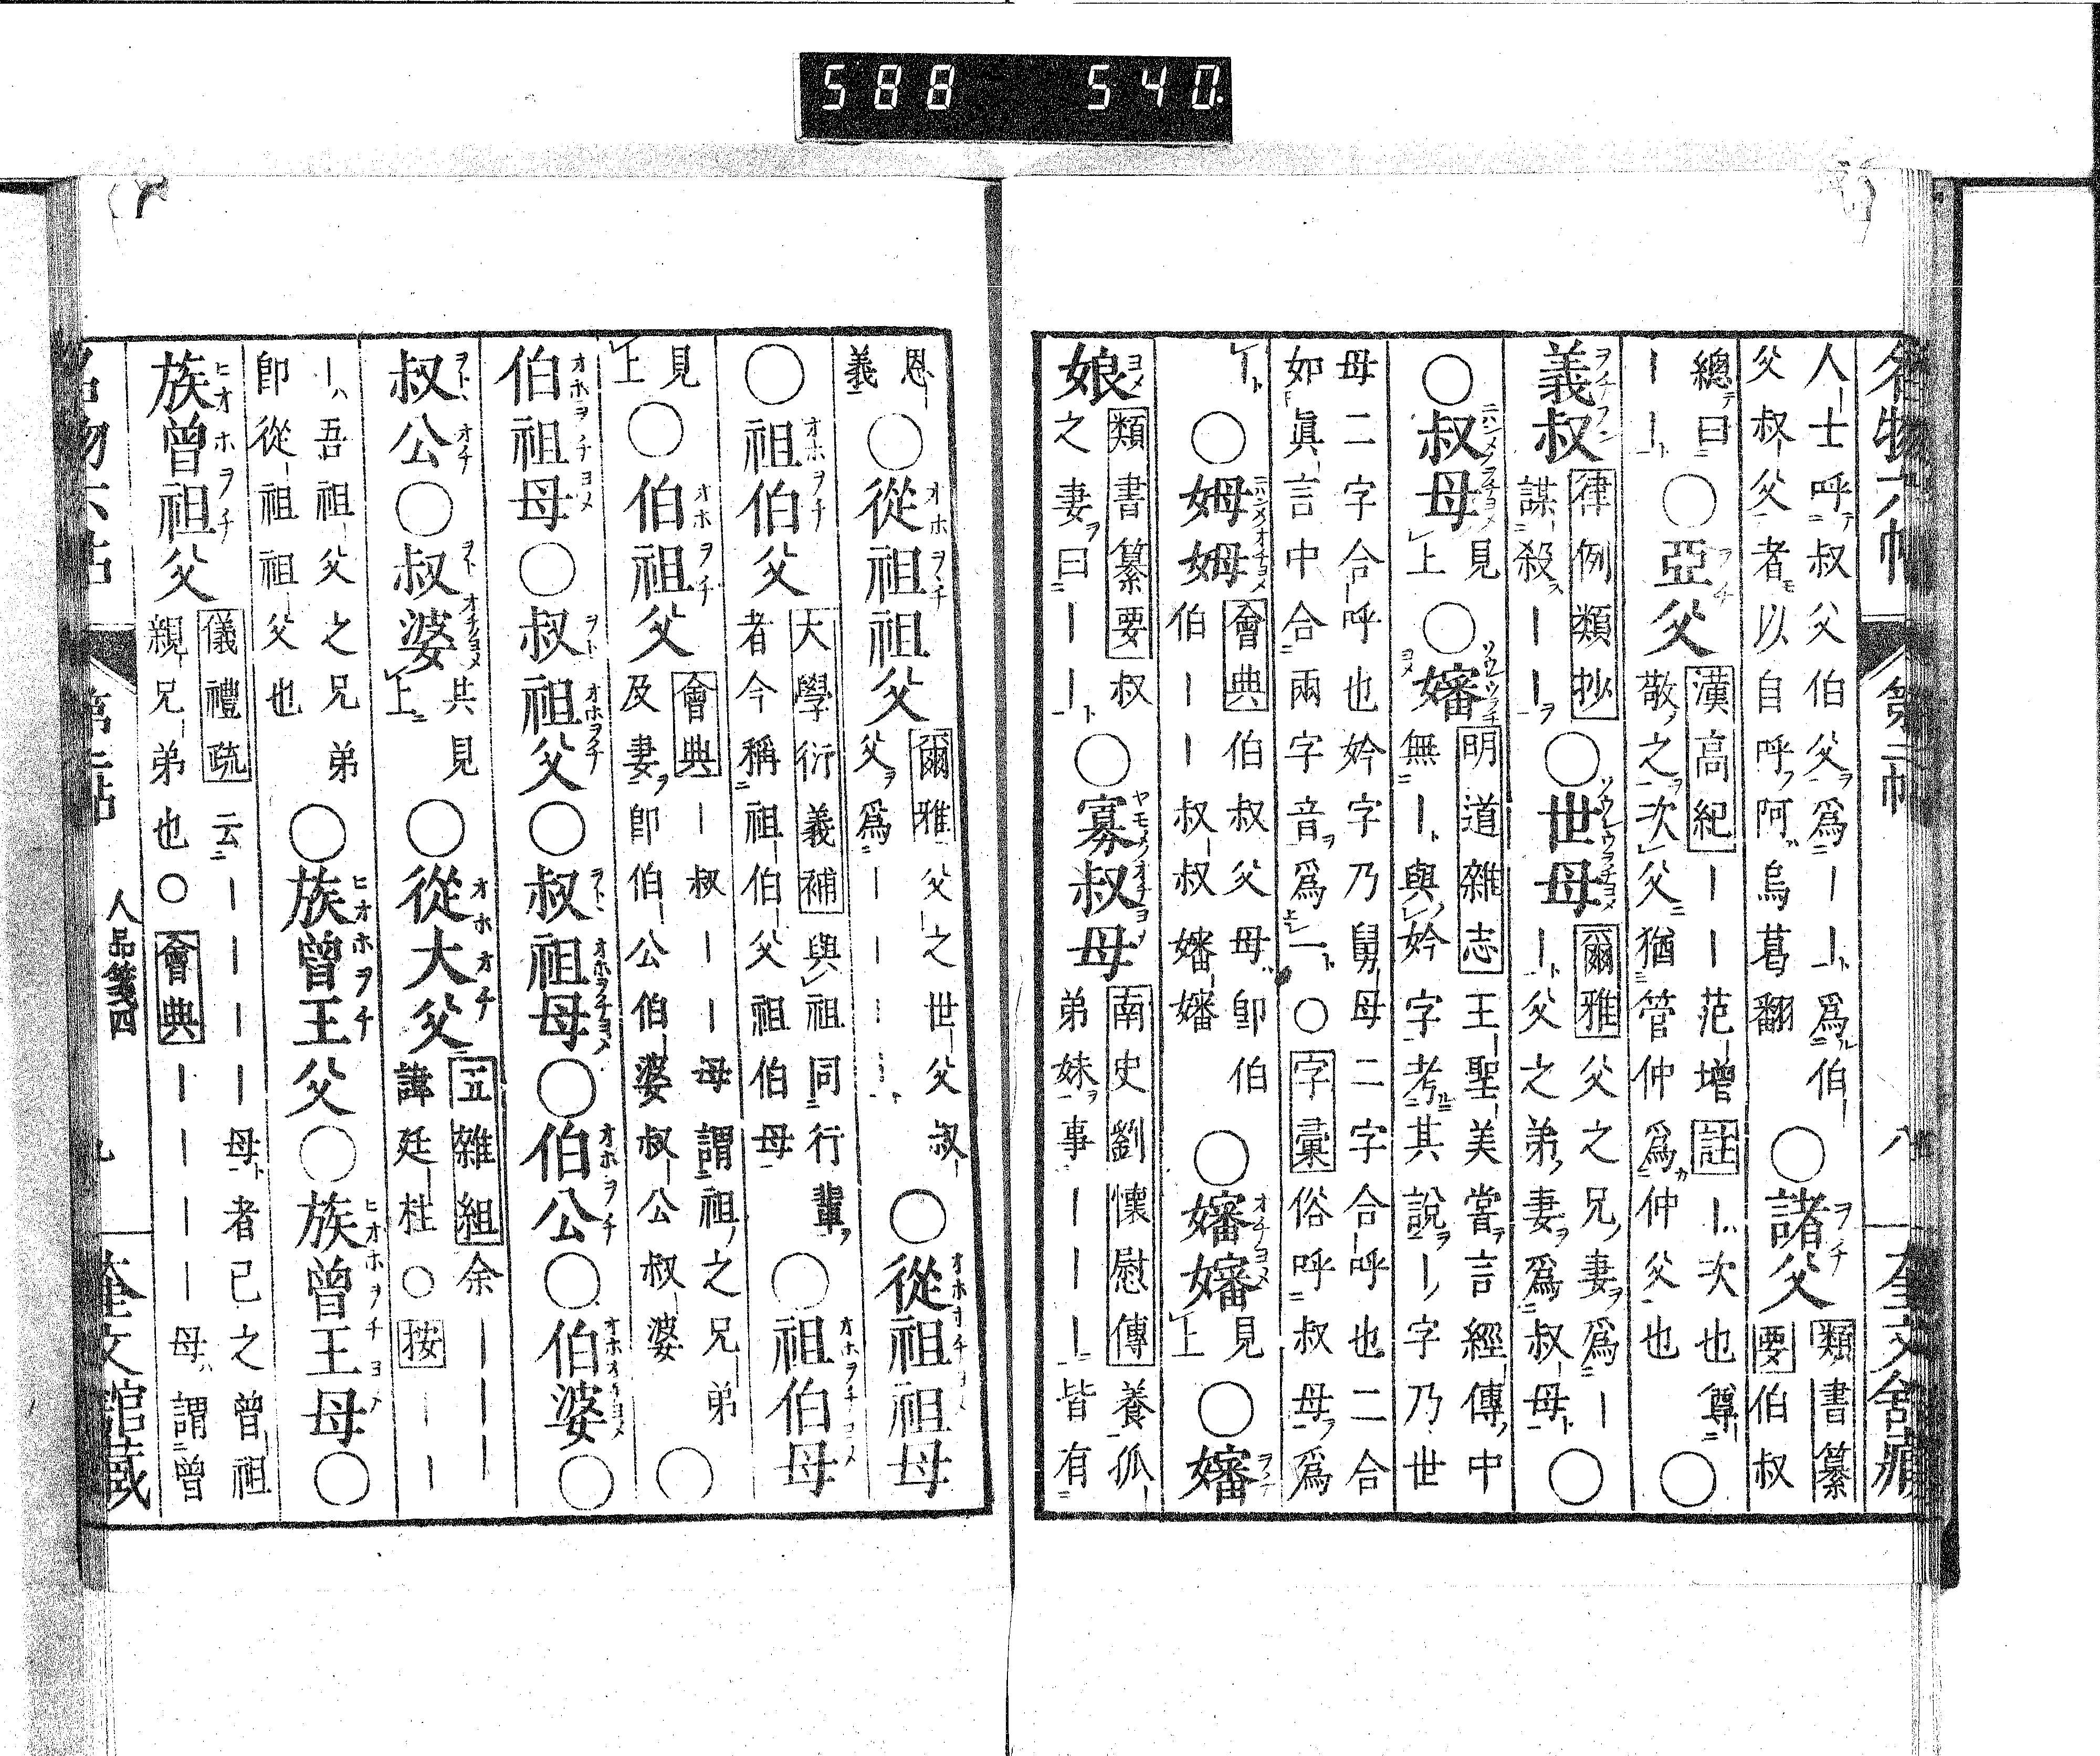 588 540
名物六帖 第二帖 八 奎文舘藏
人士呼叔父伯父爲｜｜爲伯
父叔父者以自呼阿烏葛翻
○諸父
類書纂
要伯叔
總曰
｜｜
○亞父
漢高紀｜｜范增註｜次也尊
敬之次父猶管仲爲仲父也
○
義叔
律例類抄
謀殺｜｜
○世母
爾雅父之兄妻爲｜
｜父之弟妻爲叔母
○
○叔母
見
上
○嬸
明道雜志王聖美嘗言經傳中
無｜與妗字考其說｜字乃世
母二字合呼也妗字乃舅母二字合呼也二合
如眞言中合兩字音爲一○字彙俗呼叔母爲
｜
○姆姆
會典伯叔父母卽伯
伯｜｜叔叔嬸嬸
○嬸嬸
見
上
○嬸
娘
類書纂要叔
之妻曰｜｜
○寡叔母
南史劉懷慰傳養孤
弟妹事｜｜｜皆有
恩
義
○從祖祖父
爾雅父之世父叔
父爲｜｜｜｜
○從祖祖母
○祖伯父
大學衍義補與祖同行輩
者今稱祖伯父祖伯母
○祖伯母
見
上
○伯祖父
會典｜叔｜｜母謂祖之兄弟
及妻卽伯公伯婆叔公叔婆
○
伯祖母○叔祖父○叔祖母○伯公○伯婆○
叔公○叔婆
共見
上
○從大父
五雜組余｜｜｜
諱廷柱○按｜｜
｜吾祖父之兄弟
卽從祖祖父也
○族曾王父○族曾王母○
族曾祖父
儀禮疏云｜｜｜｜母者己之曾祖
親兄弟也○會典｜｜｜｜母謂曾
名物六帖 第二帖 人品箋四 九 奎文舘藏